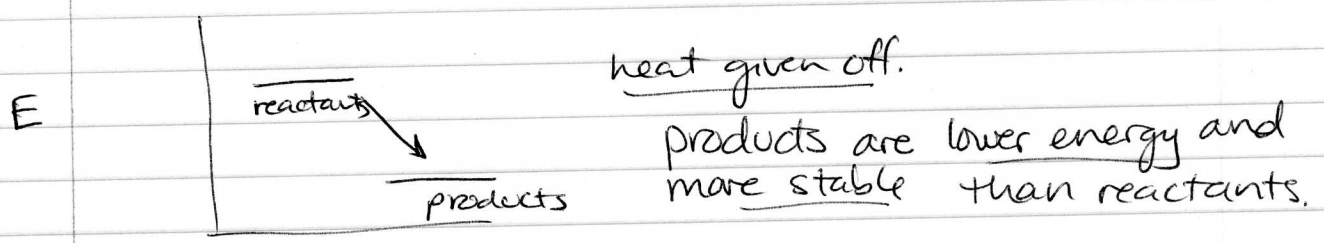 E
reactants
products
heat given off.
products are lower energy and
more stable than reactants.